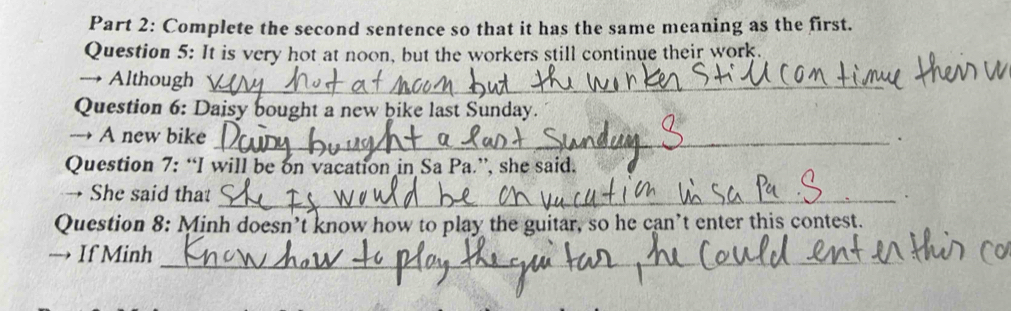 Part 2: Complete the second sentence so that it has the same meaning as the first.
Question 5: It is very hot at noon, but the workers still continue their work.
→ Although very hot at noon but the worker still continue their w
Question 6: Daisy bought a new bike last Sunday.
→ A new bike Daisy bought a last Sunday S
Question 7: “I will be on vacation in Sa Pa.”, she said.
→ She said that she is would be on vacation in Sa Pa. S
Question 8: Minh doesn’t know how to play the guitar, so he can’t enter this contest.
→ If Minh know how to play the guitar, he could enter this co